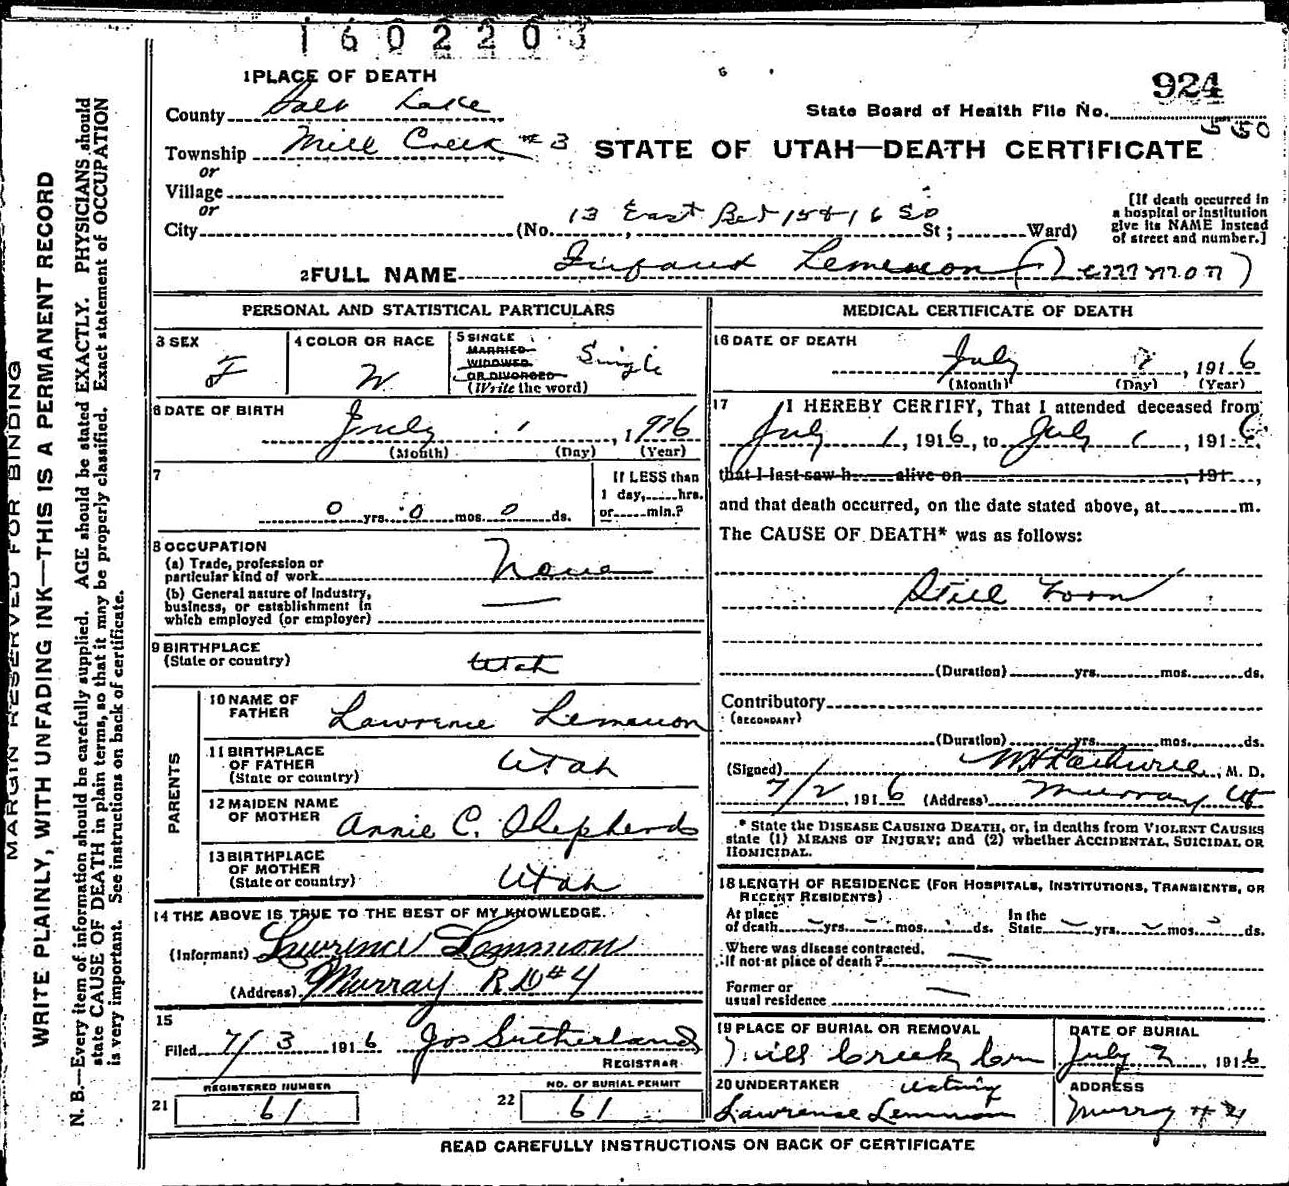 1602203
1 PLACE OF DEATH
924
County Salt Lake
State Board of Health File No.
550
Township Mill Creek #3
STATE OF UTAH—DEATH CERTIFICATE
or
Village
or
City (No. 13 East Bet 15 & 16 So St; Ward)
[If death occurred in
a hospital or institution
give its NAME instead
of street and number.]
2 FULL NAME Infant Lemmon (Lemmon)
PERSONAL AND STATISTICAL PARTICULARS
3 SEX
F
4 COLOR OR RACE
W
5 SINGLE
MARRIED
WIDOWED
OR DIVORCED
(Write the word)
Single
6 DATE OF BIRTH
July 1, 1916
(Month) (Day) (Year)
7
If LESS than
1 day, hrs.
or min.?
0 yrs. 0 mos. 0 ds.
8 OCCUPATION
(a) Trade, profession or
particular kind of work None
(b) General nature of Industry,
business, or establishment in
which employed (or employer)
9 BIRTHPLACE
(State or country)
Utah
PARENTS
10 NAME OF
FATHER
Lawrence Lemmon
11 BIRTHPLACE
OF FATHER
(State or country)
Utah
12 MAIDEN NAME
OF MOTHER
Annie C. Shepherd
13 BIRTHPLACE
OF MOTHER
(State or country)
Utah
14 THE ABOVE IS TRUE TO THE BEST OF MY KNOWLEDGE.
(Informant) Lawrence Lemmon
(Address) Murray R D #4
15
Filed 7/3 1916 Jos Sutherland,
REGISTRAR
REGISTERED NUMBER
21 61
NO. OF BURIAL PERMIT
22 61
MEDICAL CERTIFICATE OF DEATH
16 DATE OF DEATH
July , 1916
(Month) (Day) (Year)
17 I HEREBY CERTIFY, That I attended deceased from
July 1, 1916, to July 1, 1916,
that I last saw h alive on , 191 ,
and that death occurred, on the date stated above, at m.
The CAUSE OF DEATH* was as follows:
Still born
(Duration) yrs. mos. ds.
Contributory
(SECONDARY)
(Duration) yrs. mos. ds.
(Signed) , M. D.
7/2, 1916 (Address) Murray Ut
* State the DISEASE CAUSING DEATH, or, in deaths from VIOLENT CAUSES
state (1) MEANS OF INJURY; and (2) whether ACCIDENTAL, SUICIDAL OR
HOMICIDAL.
18 LENGTH OF RESIDENCE (FOR HOSPITALS, INSTITUTIONS, TRANSIENTS, OR
RECENT RESIDENTS)
At place
of death yrs. mos. ds.
In the
State yrs. mos. ds.
Where was disease contracted.
If not at place of death?
Former or
usual residence
19 PLACE OF BURIAL OR REMOVAL
Mill Creek Cem
DATE OF BURIAL
July 2 1916
20 UNDERTAKER Acting
Lawrence Lemmon
ADDRESS
Murray #4
READ CAREFULLY INSTRUCTIONS ON BACK OF CERTIFICATE
MARGIN RESERVED FOR BINDING
WRITE PLAINLY, WITH UNFADING INK—THIS IS A PERMANENT RECORD
N. B.—Every item of information should be carefully supplied. AGE should be stated EXACTLY. PHYSICIANS should
state CAUSE OF DEATH in plain terms, so that it may be properly classified. Exact statement of OCCUPATION
is very important. See instructions on back of certificate.